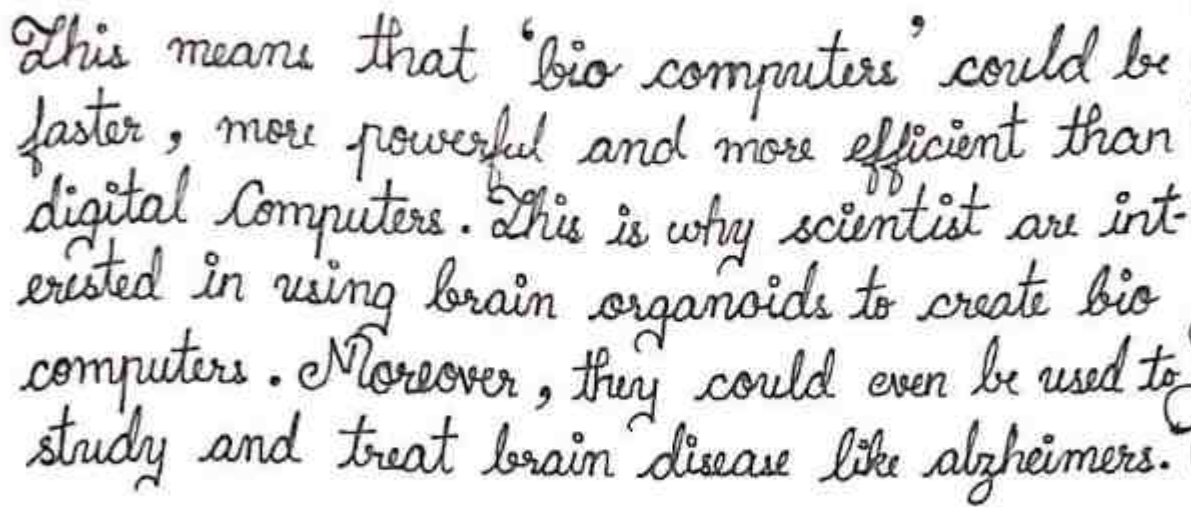 This means that 'bio computers' could be
faster, more powerful and more efficient than
digital Computers. This is why scientist are int-
erested in using brain organoids to create bio
computers. Moreover, they could even be used to
study and treat brain disease like alzheimers.